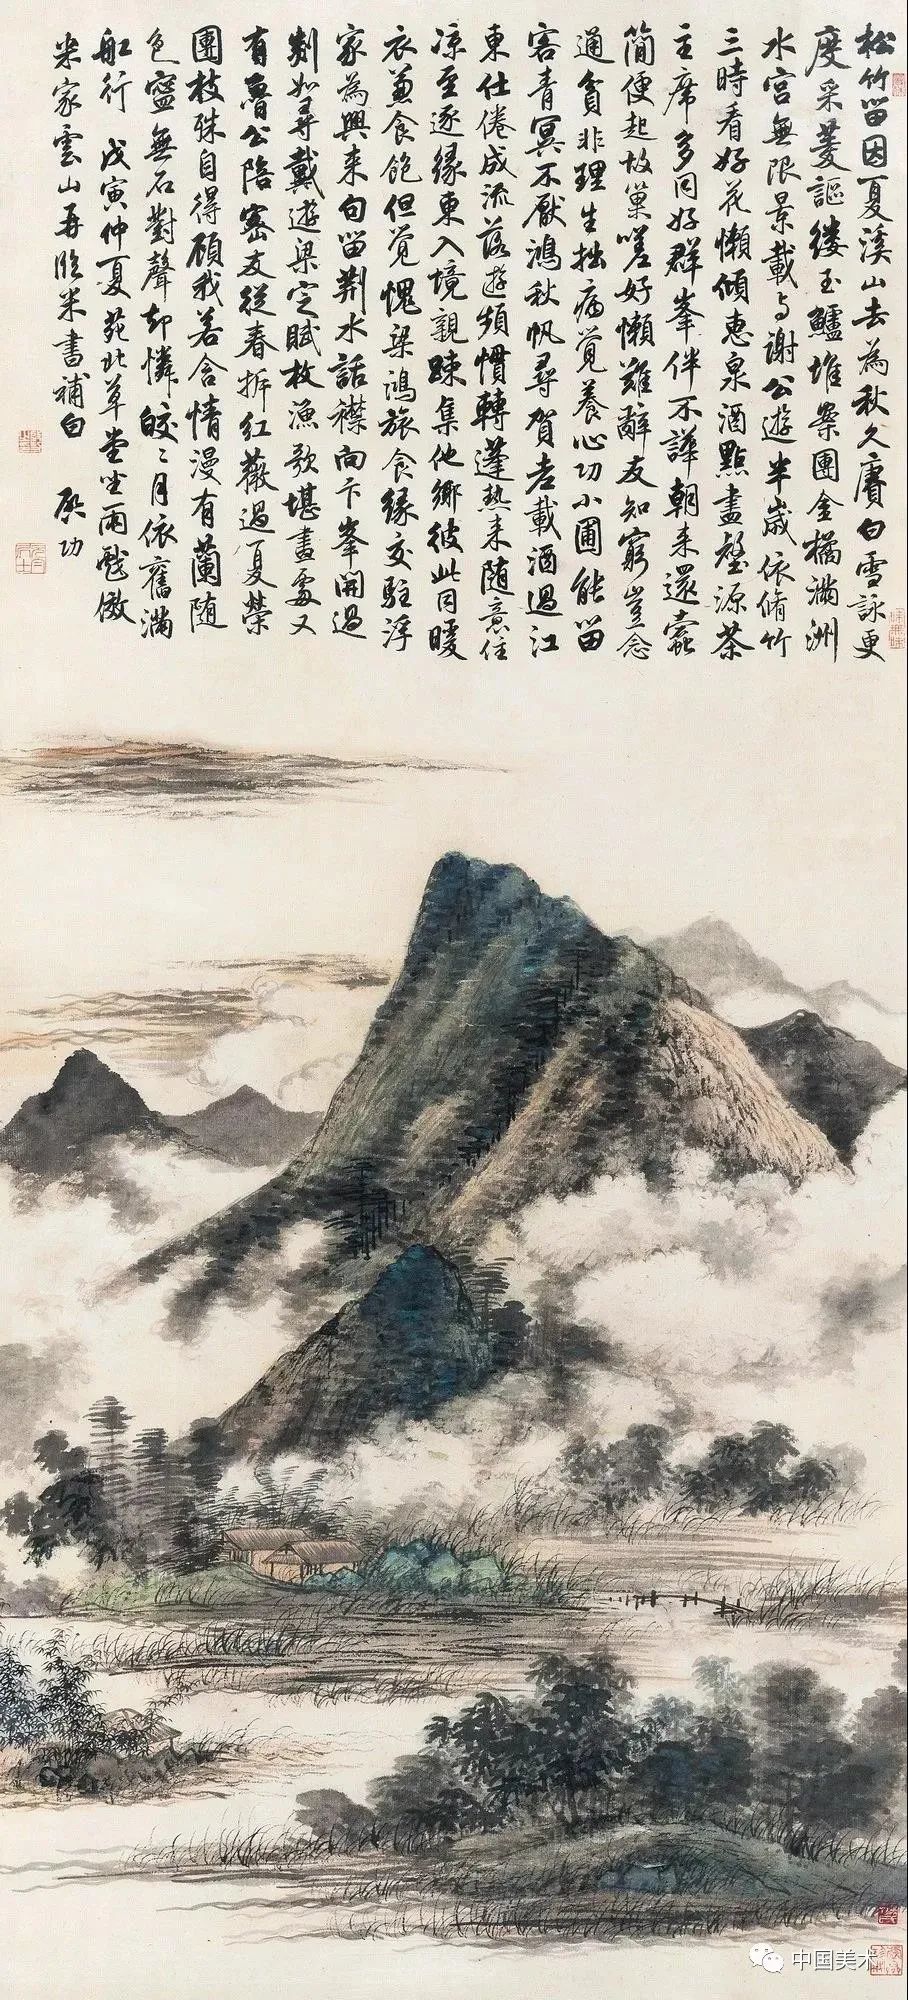 松竹留因夏溪山去為秋久賡白雪詠更
度采菱謳縷玉鱸堆案團金橘滿洲
水宮無限景載与謝公遊半歲依脩竹
三時看好花懶傾惠泉酒點盡壑源茶
主席多同好群峯伴不譁朝来還蠹
簡便起故巢嗟好懶難辭友知窮豈念
通貧非理生拙病覺養心功小圃能留
客青冥不厭鴻秋帆尋賀老載酒過江
東仕倦成流落遊頻慣轉蓬熱来随意住
凉至逐緣東入境親踈集他鄉彼此同暖
衣兼食飽但覺愧梁鴻旅食緣交駐浮
家為興来句留荆水話襟向卞峯開過
剡如尋戴遊梁定賦枚漁歌堪畫處又
有魯公陪密友從春拆紅薇過夏榮
團枝殊自得顧我若含情漫有蘭随
色寧無石對聲却憐皎〻月依舊滿
舡行 戊寅仲夏苑北草堂坐雨戲倣
米家雲山再臨米書補白 啟功
中国美术